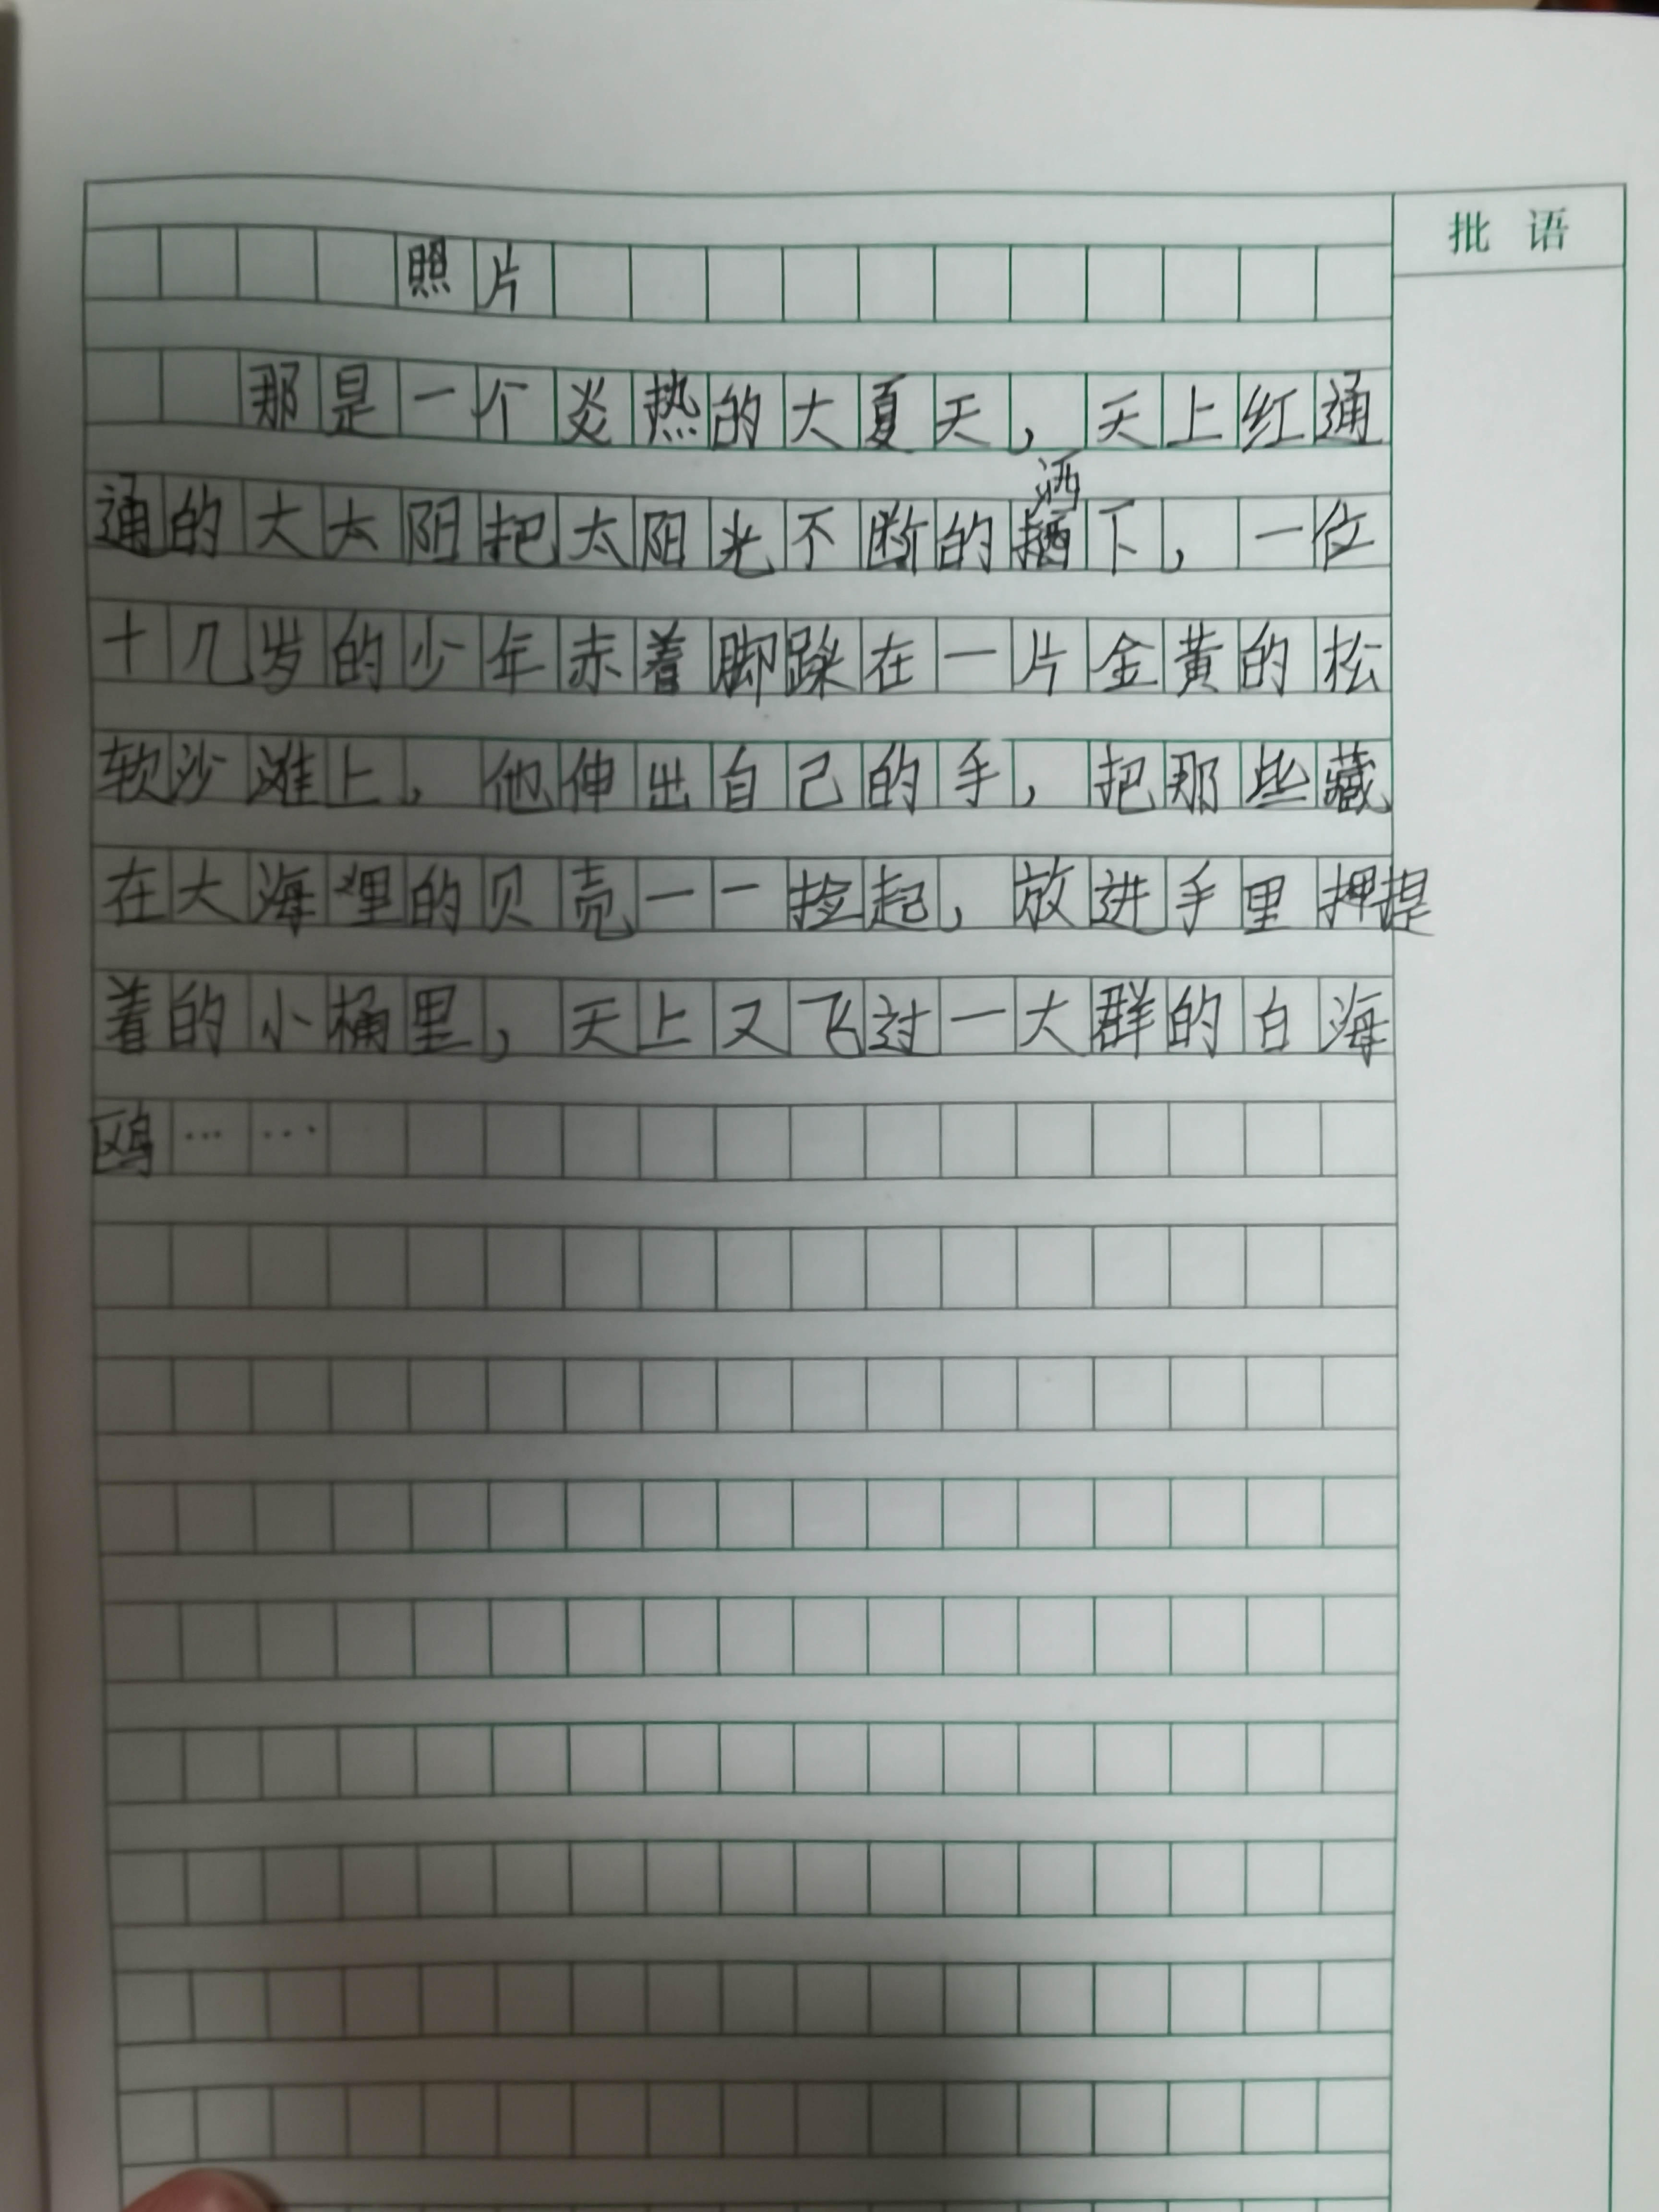 批语
照片
那是一个炎热的大夏天，天上红通
通的大太阳把太阳光不断的洒下，一位
十几岁的少年赤着脚踩在一片金黄的松
软沙滩上，他伸出自己的手，把那些藏
在大海里的贝壳一一捡起，放进手里押提
着的小桶里，天上又飞过一大群的白海
鸥……